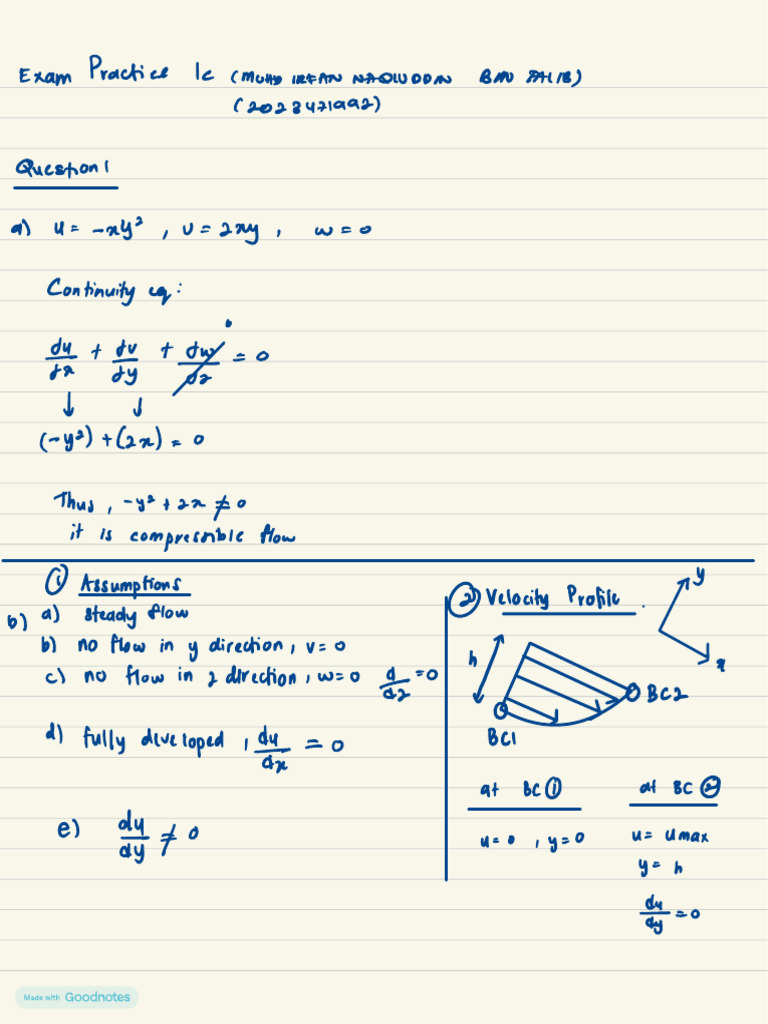 Exam Practice 1c (MUHD IRFAN NAQIUDDIN BIN TALIB)
(2023421992)
Question 1
a) u = -xy², v = 2xy, w = 0
Continuity eq:
du/dx + dv/dy + dw/dz = 0
0
↓ ↓
(-y²) + (2x) = 0
Thus, -y² + 2x ≠ 0
it is compressible flow
b)
① Assumptions
a) steady flow
b) no flow in y direction, v = 0
c) no flow in z direction, w = 0 d/dz = 0
d) fully developed, du/dx = 0
e) du/dy ≠ 0
② Velocity Profile.
y
x
h
BC2
BC1
at BC ①
u = 0, y = 0
at BC ②
u = umax
y = h
du/dy = 0
Made with Goodnotes